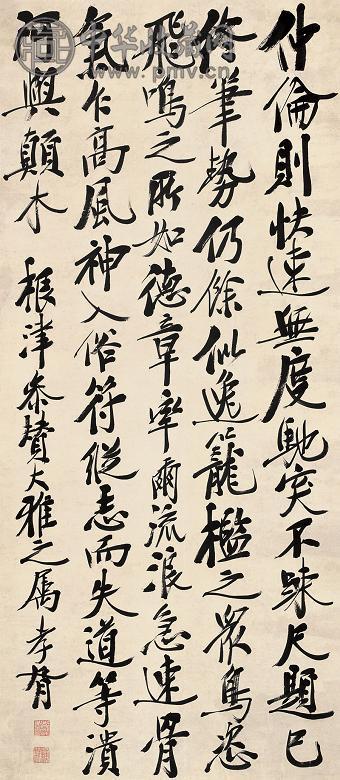 仲倫則快速無度馳突不疎尺題已
行筆勢仍餘似逸籠檻之眾鳥恣
飛鳴之所如德章率爾流浪急速骨
氣乍高風神入俗符縱志而失道等潰
酒與顛木
根津參贊大雅之屬 孝胥
中华收藏网
www.pmv.cn